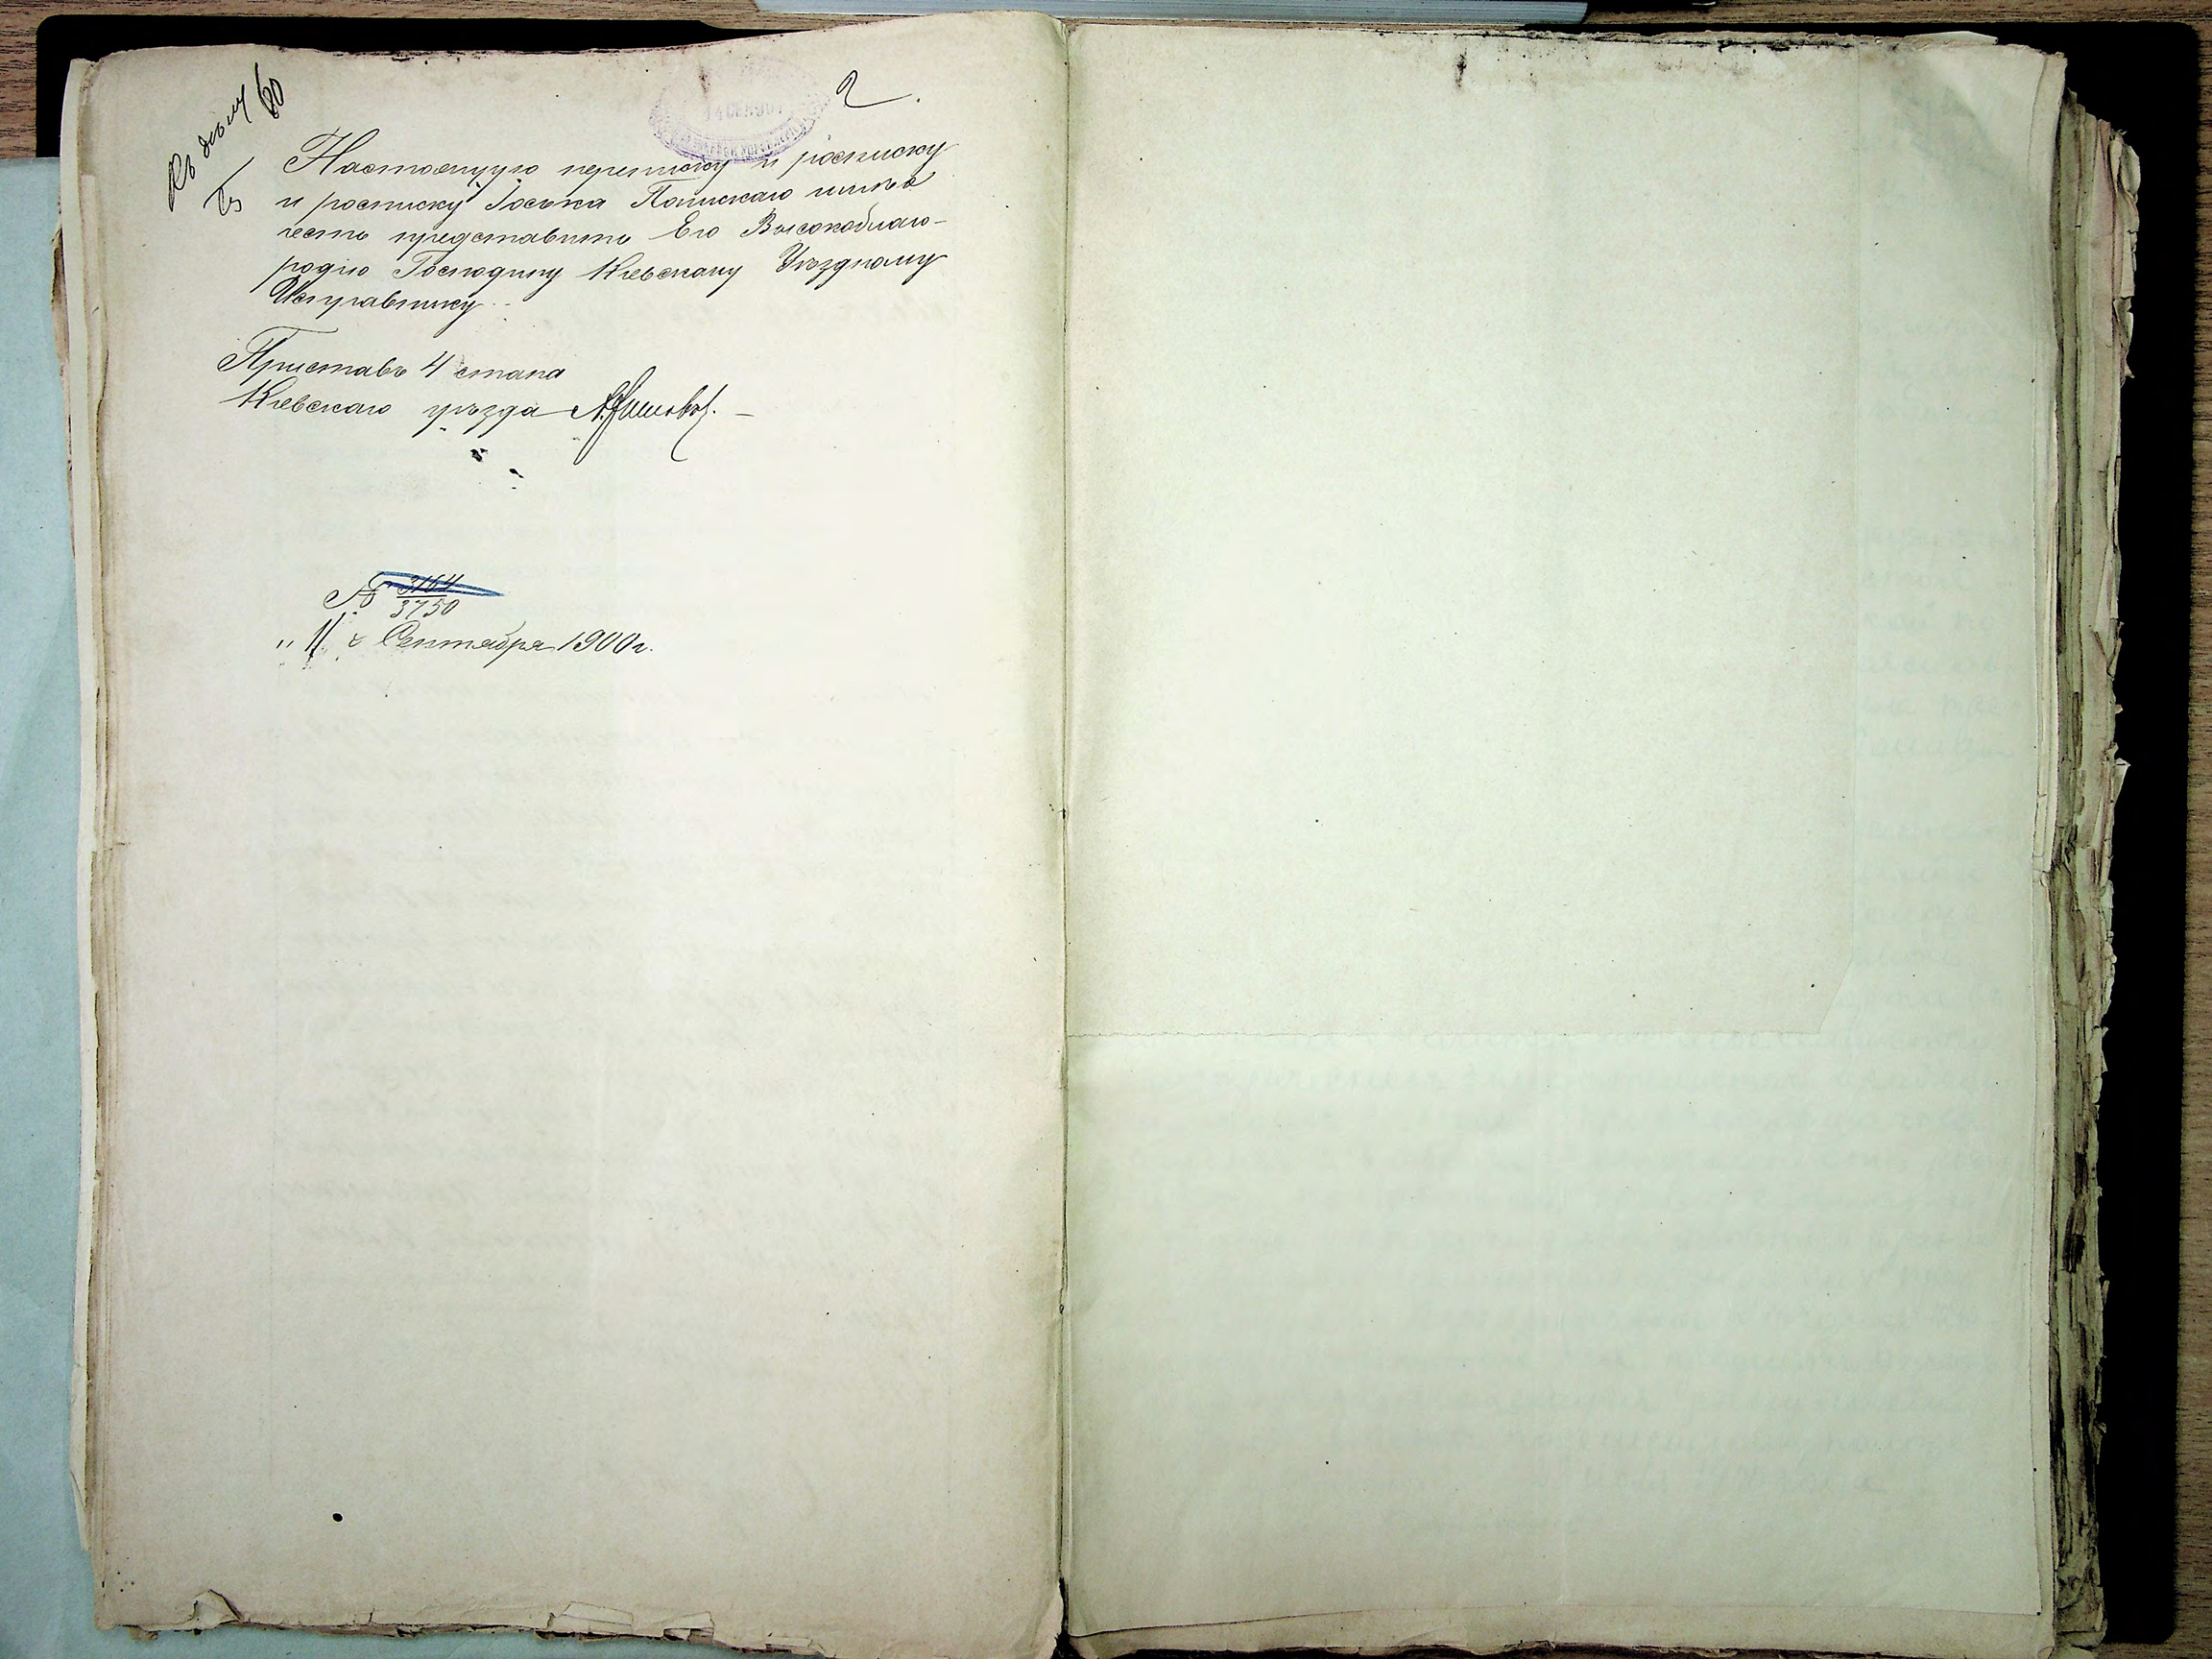 Къ дѣлу
2
Настоящую переписку и росписку
и росписку Іоська Папискаго имѣю
честь представить Его Высокоблаго-
родію Господину Кіевскому Уѣздному
Исправнику.
Приставъ 4 стана
Кіевскаго уѣзда
№ 3164
3750
„ 11 " Сентября 1900 г.